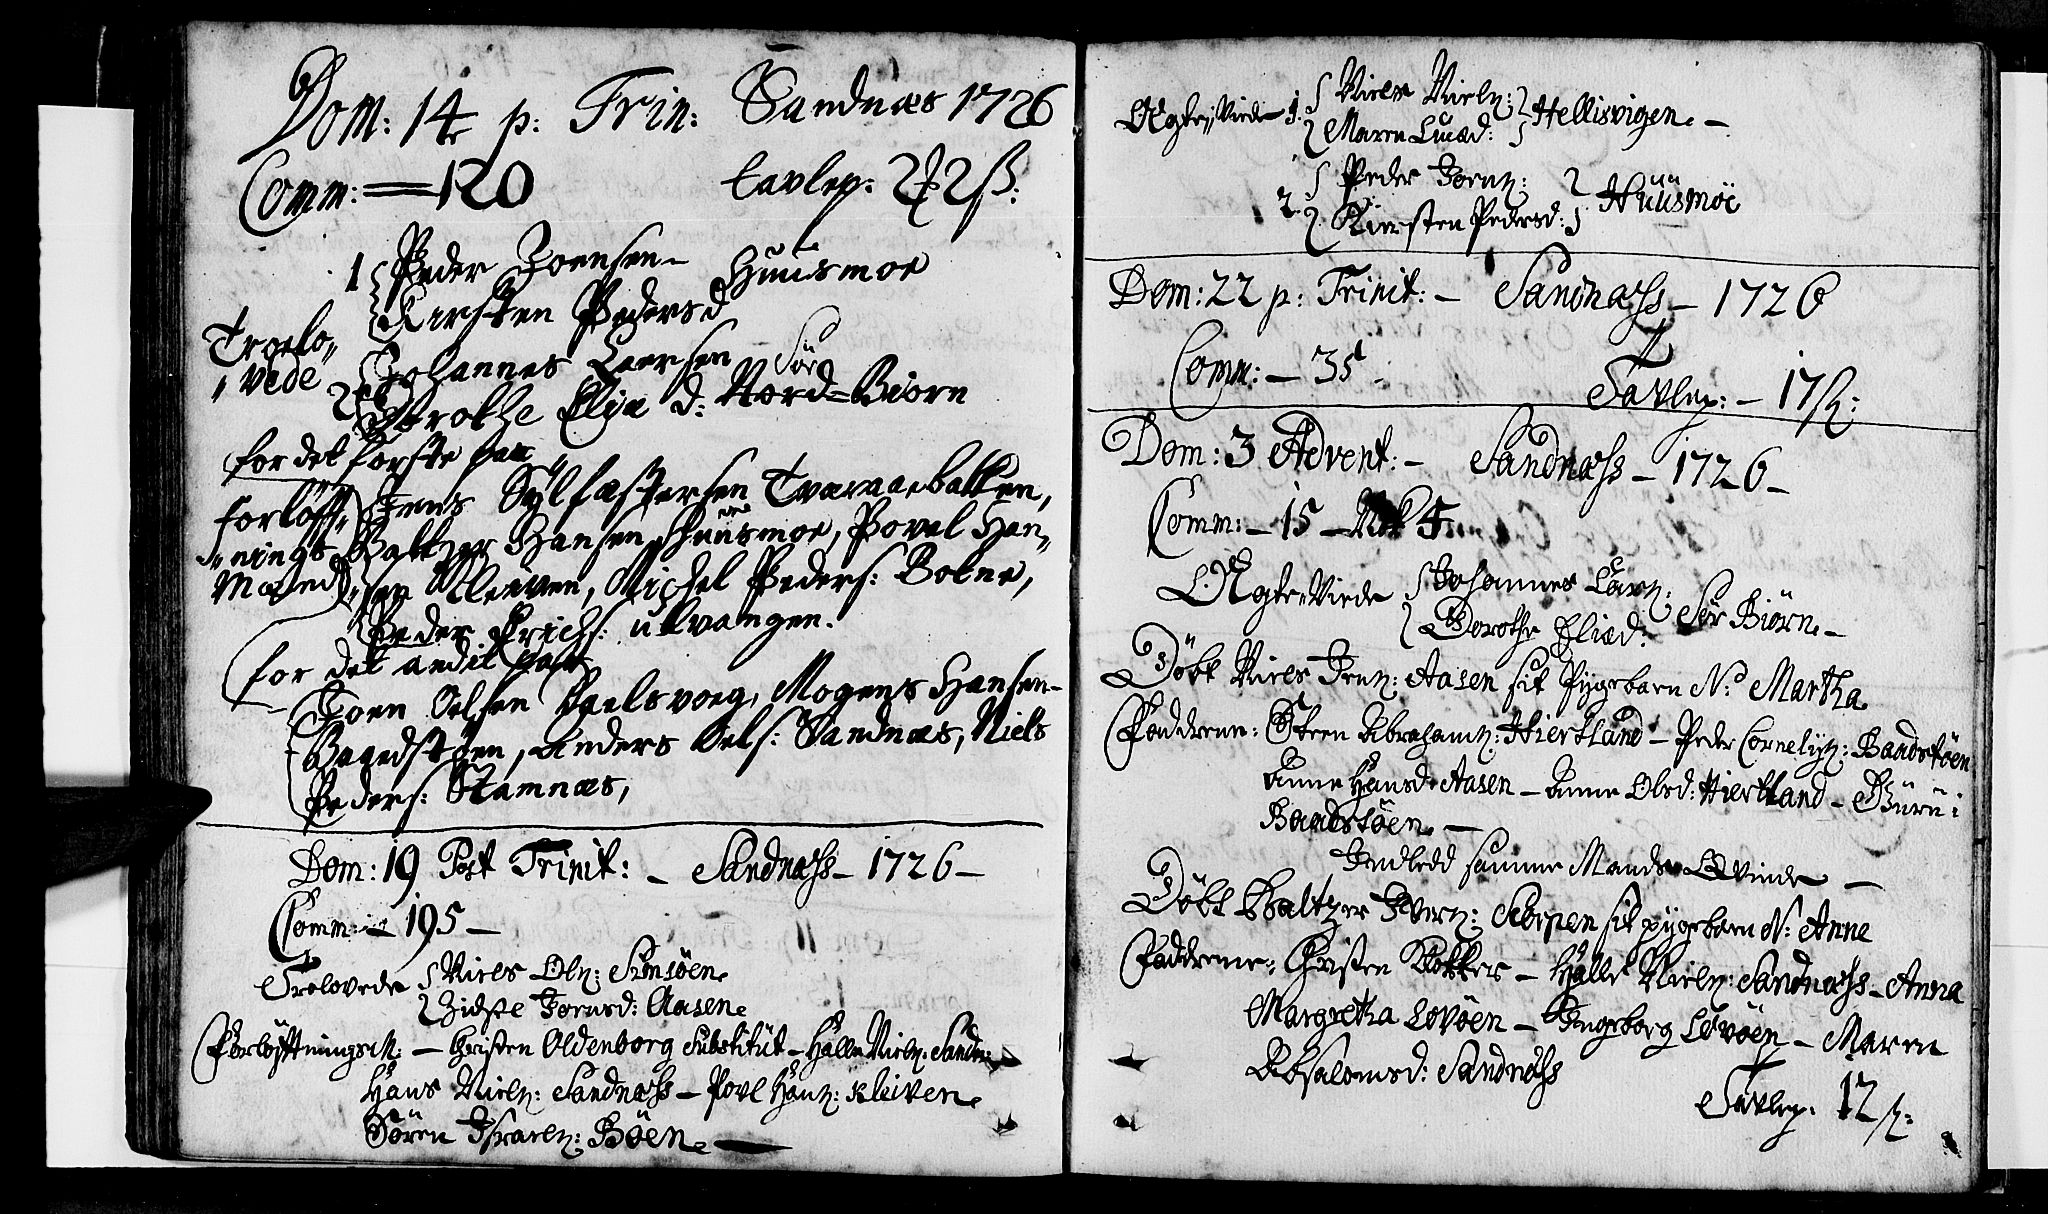 Dom: 14 p: Trin: Sandnæs 1726
Comm: = 120 tavlep: 2 2 ß:
1 Peder Joensen - Huusmoe
Kirsten Pedersd
Troelo„
„vede
2 Johannes Laersen Sör
Dorothe Elia d: Nord=Biörn
for det förste paar
forlöff„ Jens Sylfæstersen Tværaaebakken,
„nings Baltzer Hansen Huusmoe, Povel Han„
Mænd „sen Kleiven, Michel Peders: Botne,
Peder Erichs: ulvangen.
for det andet paar
Joen Oelsen Paelsvoeg, Mogens Hansen -
Baadstöen, Anders Oels: Sandnæs, Niels
Peders: Stamnæs,
Dom: 19 Post Trinit: - Sandnæss - 1726 -
Comm: - 195 -
Trolovede Niels Olß: Simsöen
Zidsle Joensd: Aasen
Forlöftningsm: - Christen Oldenborg Substitut - Halle Nielß: Sandn:
Hans Nielß: Sandnæss - Povl Hanß: Kleiven
Sören Israelß: Böen
Ægte„Viede 1. Niels Nielß: Hellisvigen. -
Maren Lucæd:
2. Peder Joenß: Huusmoe
Kiersten Pedersd:
Dom: 22 p: Trinit: - Sandnæss - 1726
Comm: - 35
Tavlep: - 17 ß:
Dom: 3 Advent: - Sandnæss - 1726 -
Comm: - 15 -
Ægte„Viede Johannes Larß: Sör Biörn -
Dorothe Eliæd:
Döbt Niels Jenß: Aasen sit Pygebarn N: Martha
Faddrene: Steen Abrahamß: Hiertland - Peder Cornelyß: Baadstöen
Anne Hansd: Aasen - Anne Olsd: Hiertland - Guru i
Baadstöen -
Indledd samme Mands Qvinde -
Döbt Baltzer Iverß: Skorpen sit pygebarn N: Anne
Faddrene: Christen Klokker - Halle Nielß: Sandnæss - Anna
Margretha Lovöen - Ingeborg Lovöen - Maren
Absalomsd: Sandnæss
Tavlep: 12 ß: